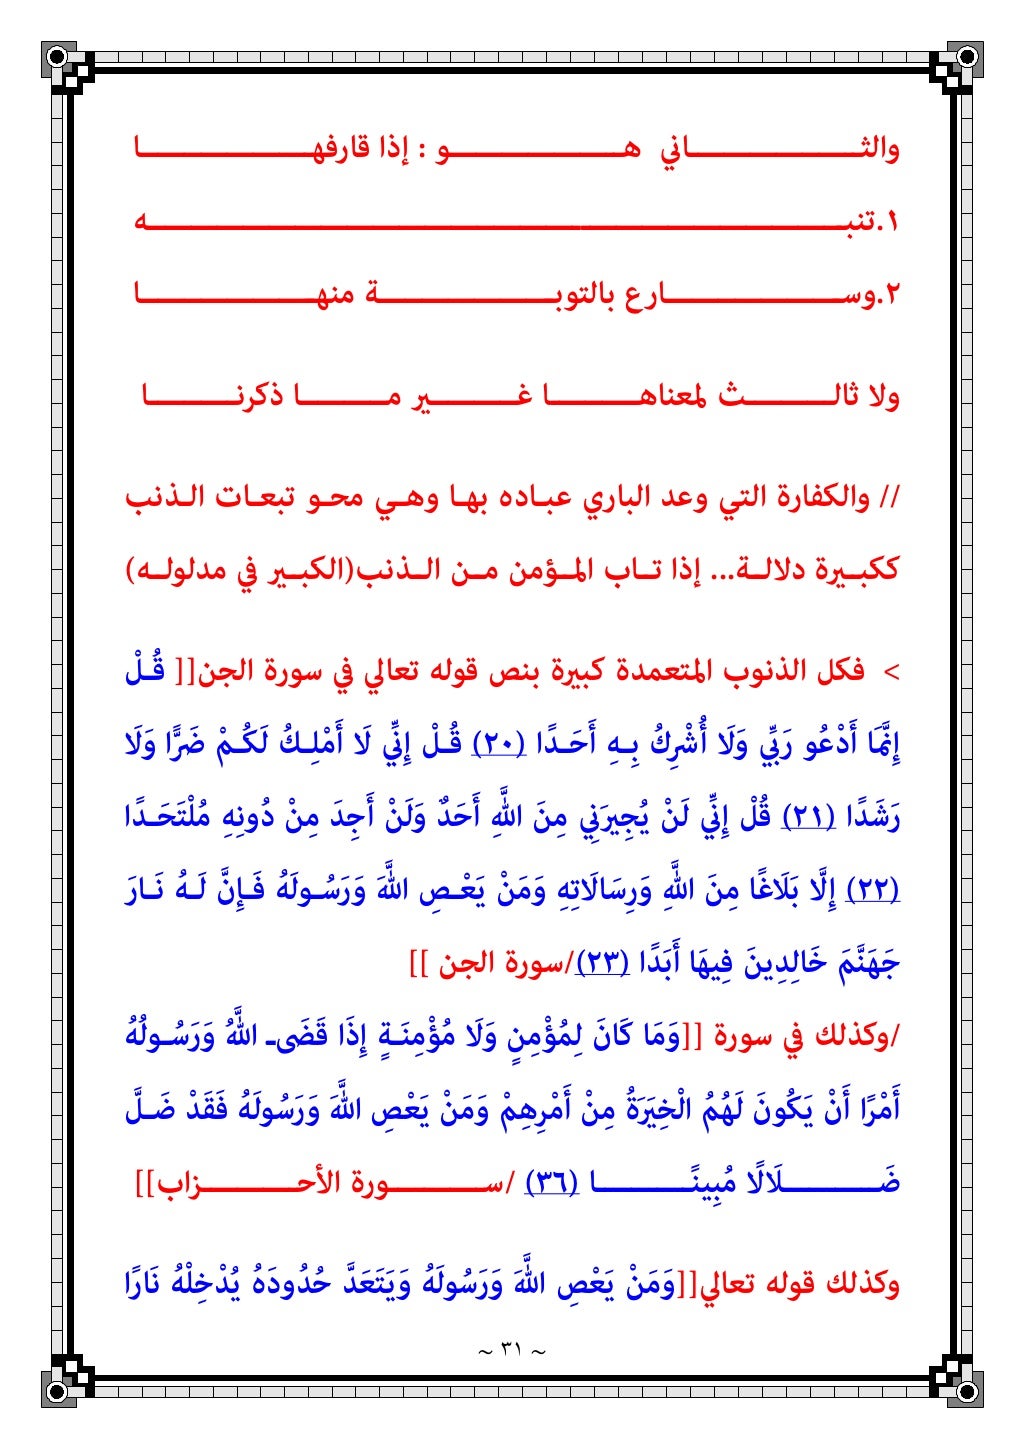 والثاني هو : إذا قارفها
١.تنبه
٢.وسارع بالتوبة منها
ولا ثالث لمعناها غير ما ذكرنا
// والكفارة التي وعد الباري عباده بها وهي محو تبعات الذنب
ككبيرة دلالة... إذا تاب المؤمن من الذنب(الكبير في مدلوله)
> فكل الذنوب المتعمدة كبيرة بنص قوله تعالي في سورة الجن[[ قُلْ
إِنَّمَا أَدْعُو رَبِّي وَلَا أُشْرِكُ بِهِ أَحَدًا (٢٠) قُلْ إِنِّي لَا أَمْلِكُ لَكُمْ ضَرًّا وَلَا
رَشَدًا (٢١) قُلْ إِنِّي لَنْ يُجِيرَنِي مِنَ اللَّهِ أَحَدٌ وَلَنْ أَجِدَ مِنْ دُونِهِ مُلْتَحَدًا
(٢٢) إِلَّا بَلَاغًا مِنَ اللَّهِ وَرِسَالَاتِهِ وَمَنْ يَعْصِ اللَّهَ وَرَسُولَهُ فَإِنَّ لَهُ نَارَ
جَهَنَّمَ خَالِدِينَ فِيهَا أَبَدًا (٢٣)/سورة الجن ]]
/وكذلك في سورة [[وَمَا كَانَ لِمُؤْمِنٍ وَلَا مُؤْمِنَةٍ إِذَا قَضَى اللَّهُ وَرَسُولُهُ
أَمْرًا أَنْ يَكُونَ لَهُمُ الْخِيَرَةُ مِنْ أَمْرِهِمْ وَمَنْ يَعْصِ اللَّهَ وَرَسُولَهُ فَقَدْ ضَلَّ
ضَلَالًا مُبِينًا (٣٦) /سورة الأحزاب]]
وكذلك قوله تعالي[[وَمَنْ يَعْصِ اللَّهَ وَرَسُولَهُ وَيَتَعَدَّ حُدُودَهُ يُدْخِلْهُ نَارًا
~ ٣١ ~